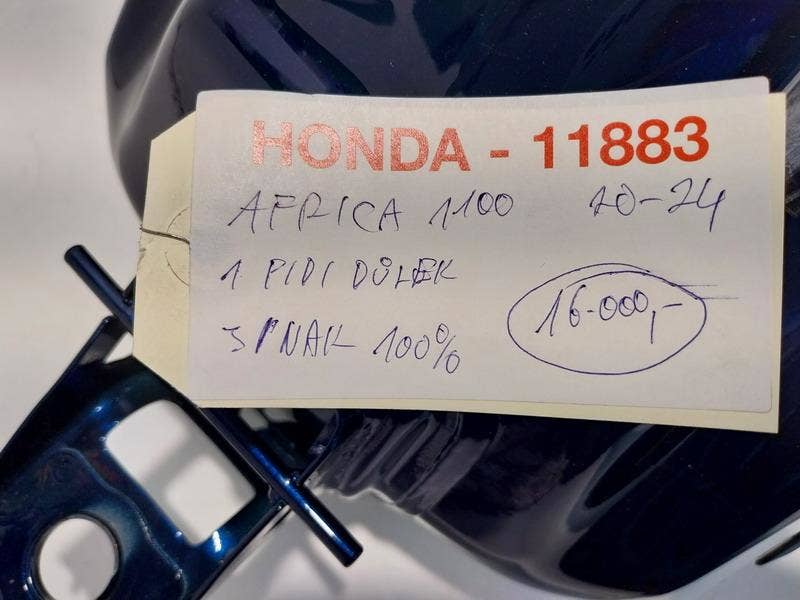 HONDA - 11883
AFRICA 1100 20-24
1 PIDI DŮLEK
JINAK 100%
16.000,-